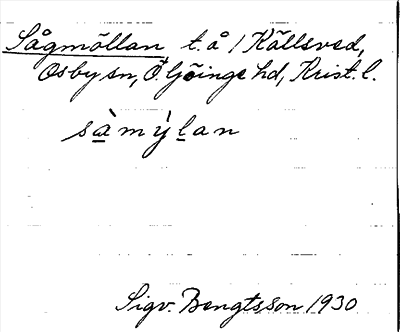 Sågmöllan t. å / Källsved,
Osby sn, Ö. Göinge hd, Krist. l.
sàmỳlan
Sigv. Bengtsson 1930